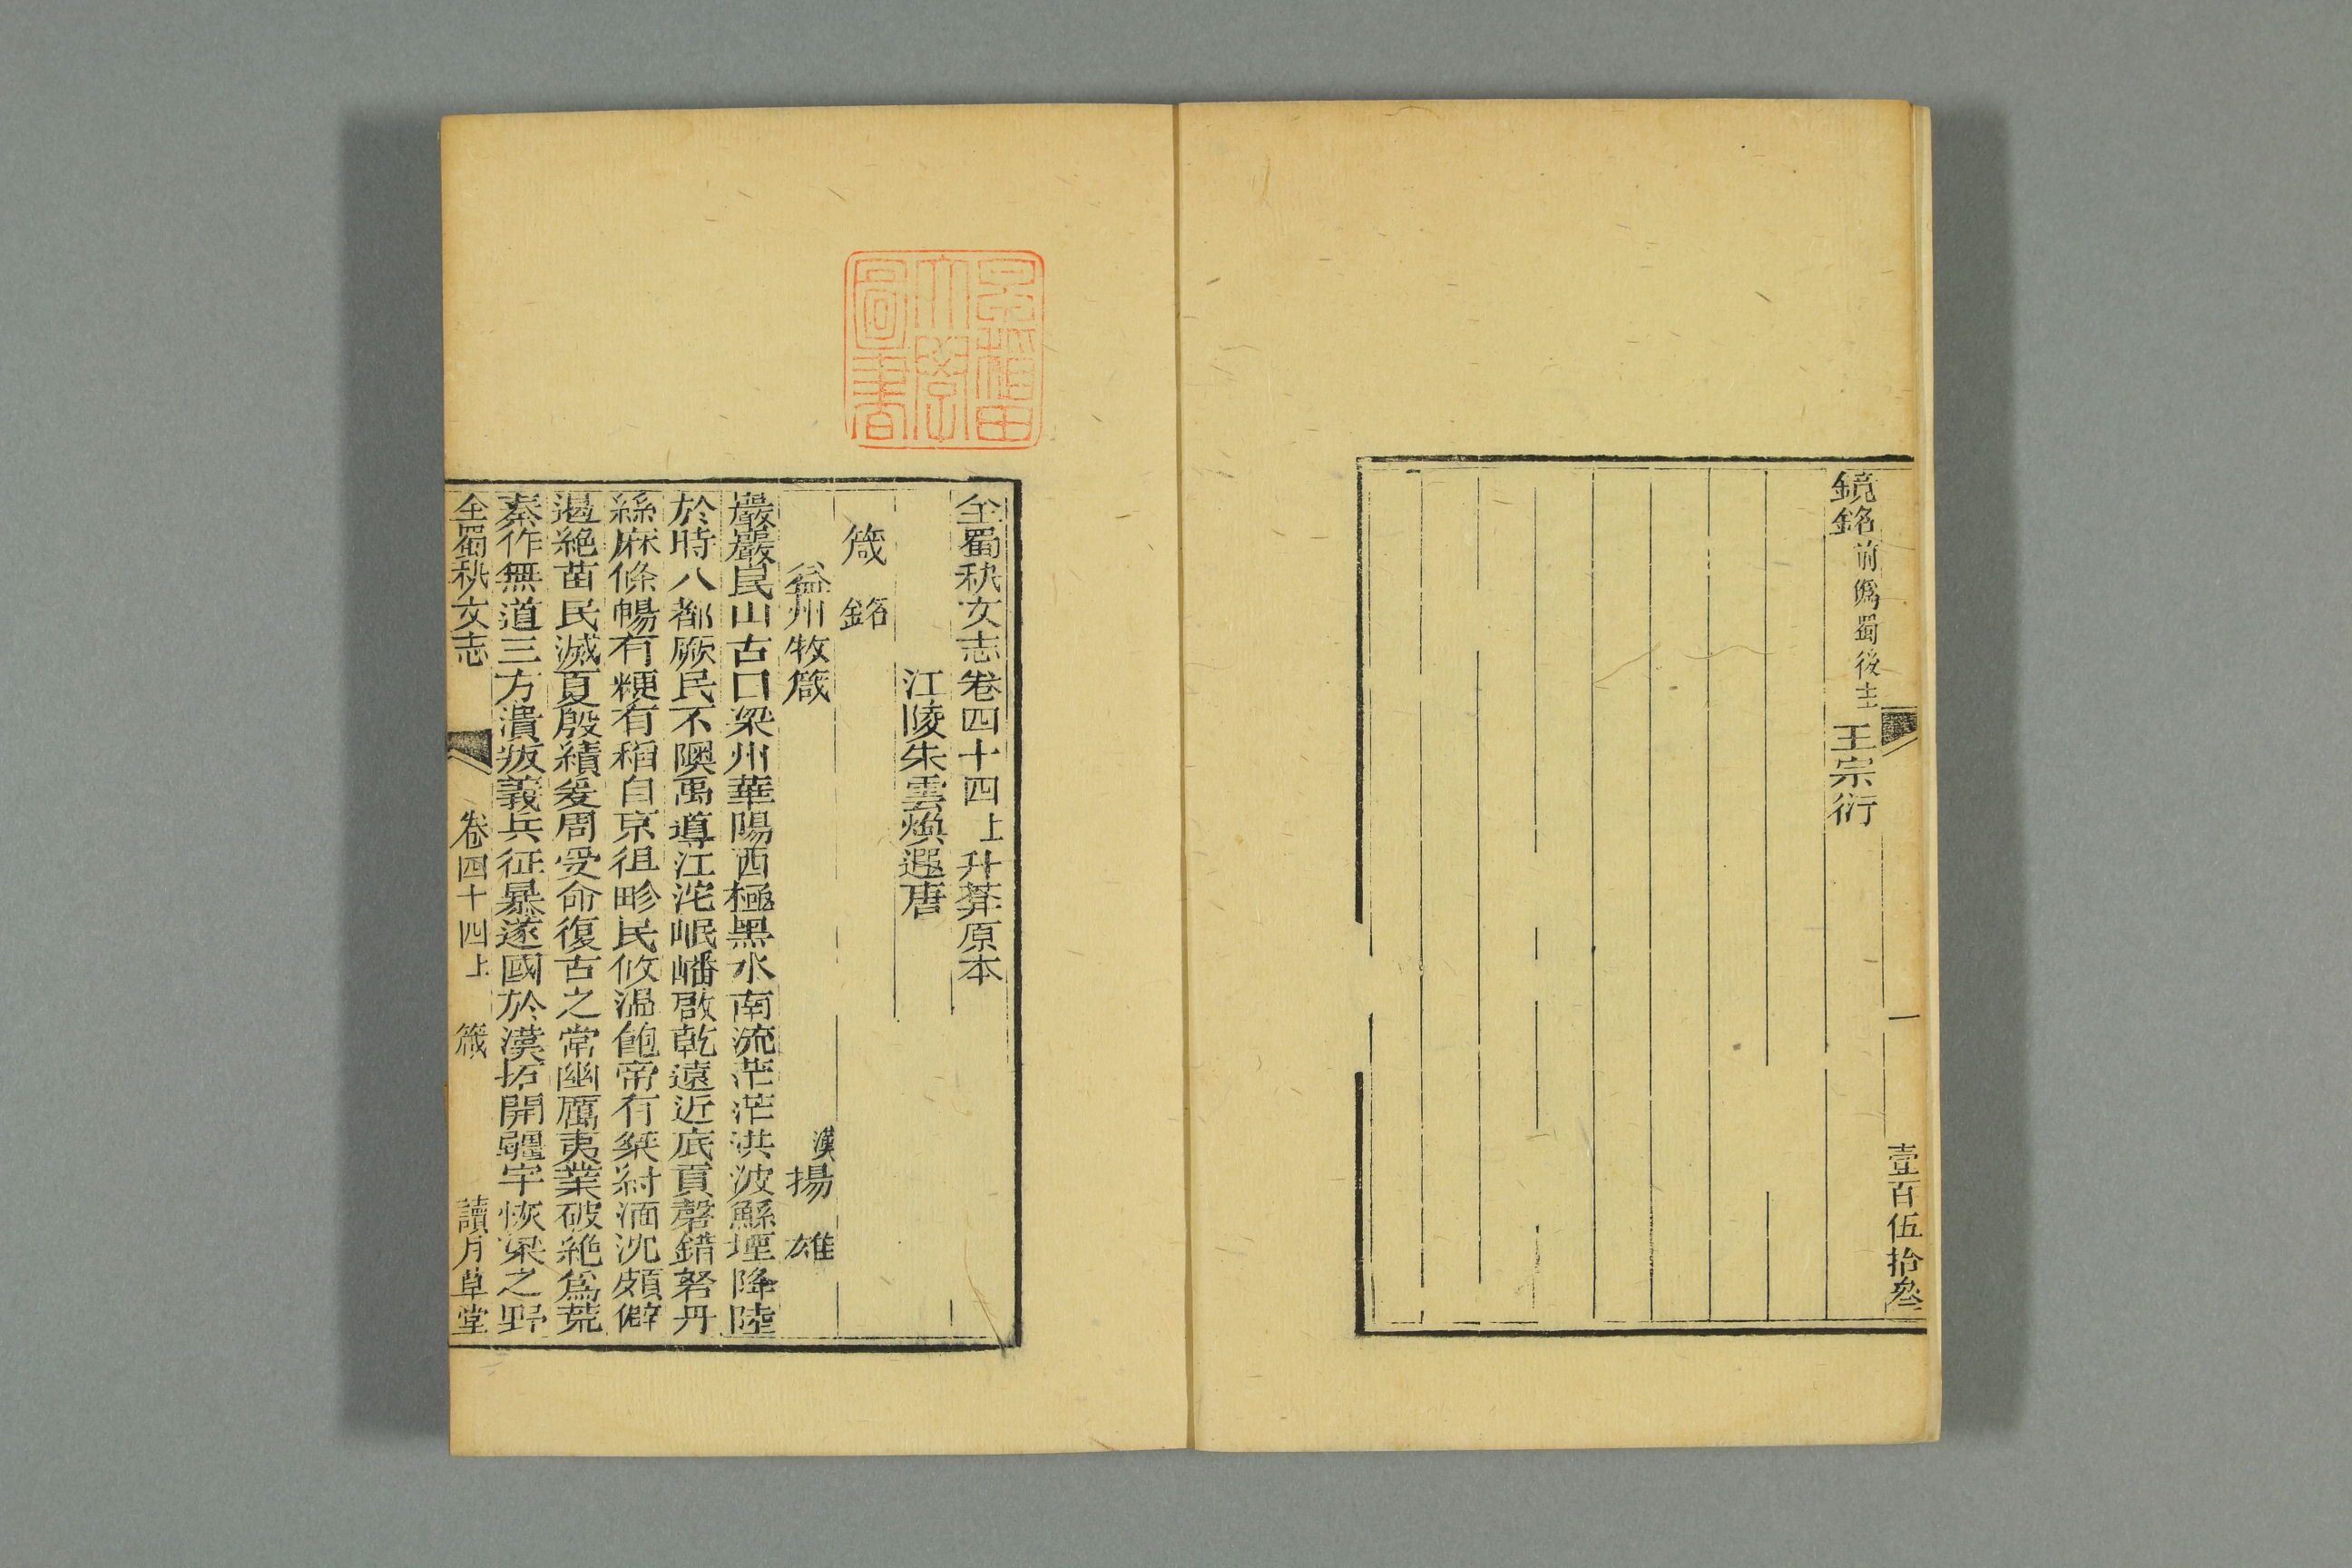 一 壹百伍拾叁
鏡銘前僞蜀後主 王宗衍
早稻田
大學
圖書
全蜀秇文志卷四十四上 升菴原本
江陵朱雲煥遐唐
箴 銘
益州牧箴 漢揚雄
巖巖㟭山古曰梁州華陽西極黑水南流茫茫洪波鯀堙降陸
於時八都厥民不隩禹導江沱岷嶓啟乾遠近底貢磬錯砮丹
絲麻條暢有粳有稻自京徂畛民攸溫飽帝有桀紂湎沈頗僻
遏絕苗民滅夏殷績爰周受命復古之常幽厲夷業破絕爲荒
秦作無道三方潰叛義兵征暴遂國於漢拓開疆宇恢梁之野
全蜀秇文志 卷四十四上 箴 讀月草堂